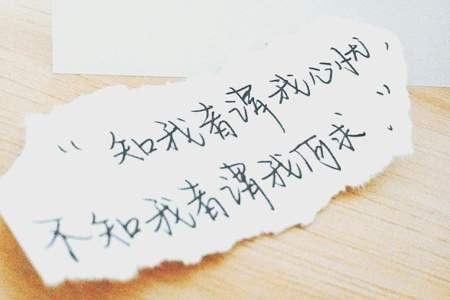 “知我者谓我心忧,
不知我者谓我何求.”